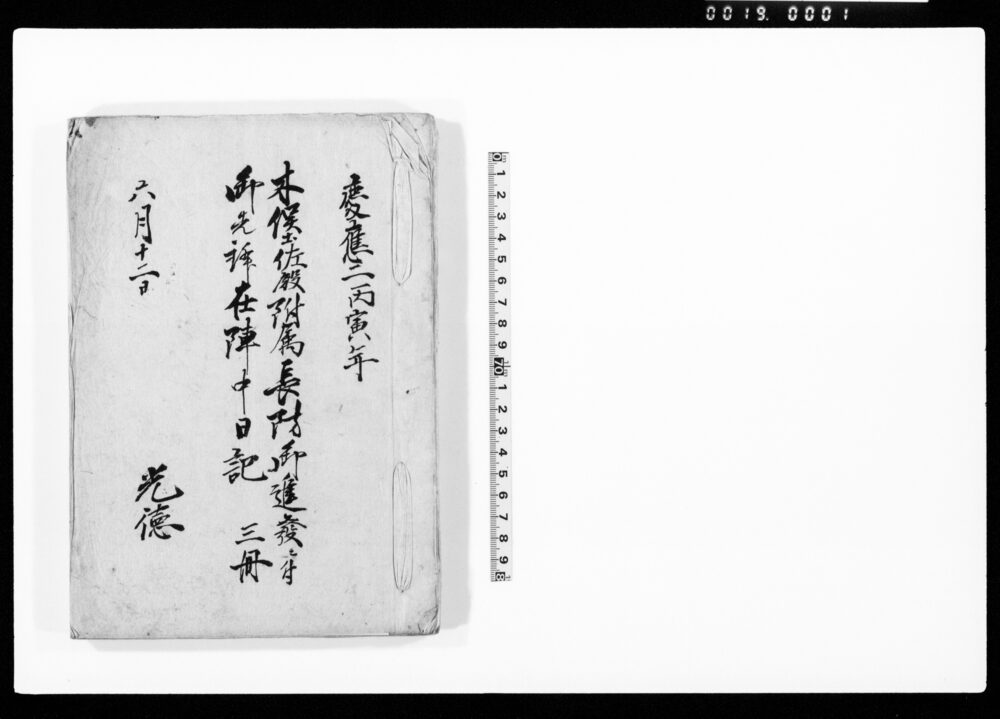 0019. 0001
慶應二丙寅年
木俣土佐殿附属長防御進發ニ付
御先鋒在陣中日記 三冊
六月十二日
光德
0 1 2 3 4 5 6 7 8 9 10 1 2 3 4 5 6 7 8 9